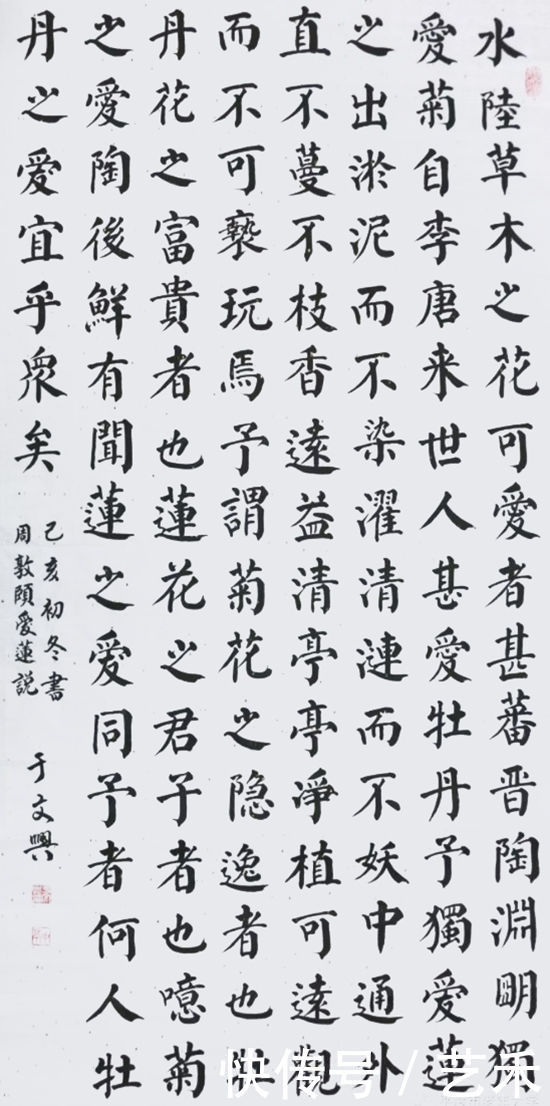 水陸草木之花可愛者甚蕃晋陶淵明獨
愛菊自李唐来世人甚愛牡丹予獨愛蓮
之出淤泥而不染濯清漣而不妖中通外
直不蔓不枝香遠益清亭亭淨植可遠觀
而不可褻玩焉予謂菊花之隐逸者也牡
丹花之富貴者也蓮花之君子者也噫菊
之愛陶後鮮有聞蓮之愛同予者何人牡
丹之愛宜乎衆矣
己亥初冬書
周敦頤愛蓮説
于文興
快传号/艺禾